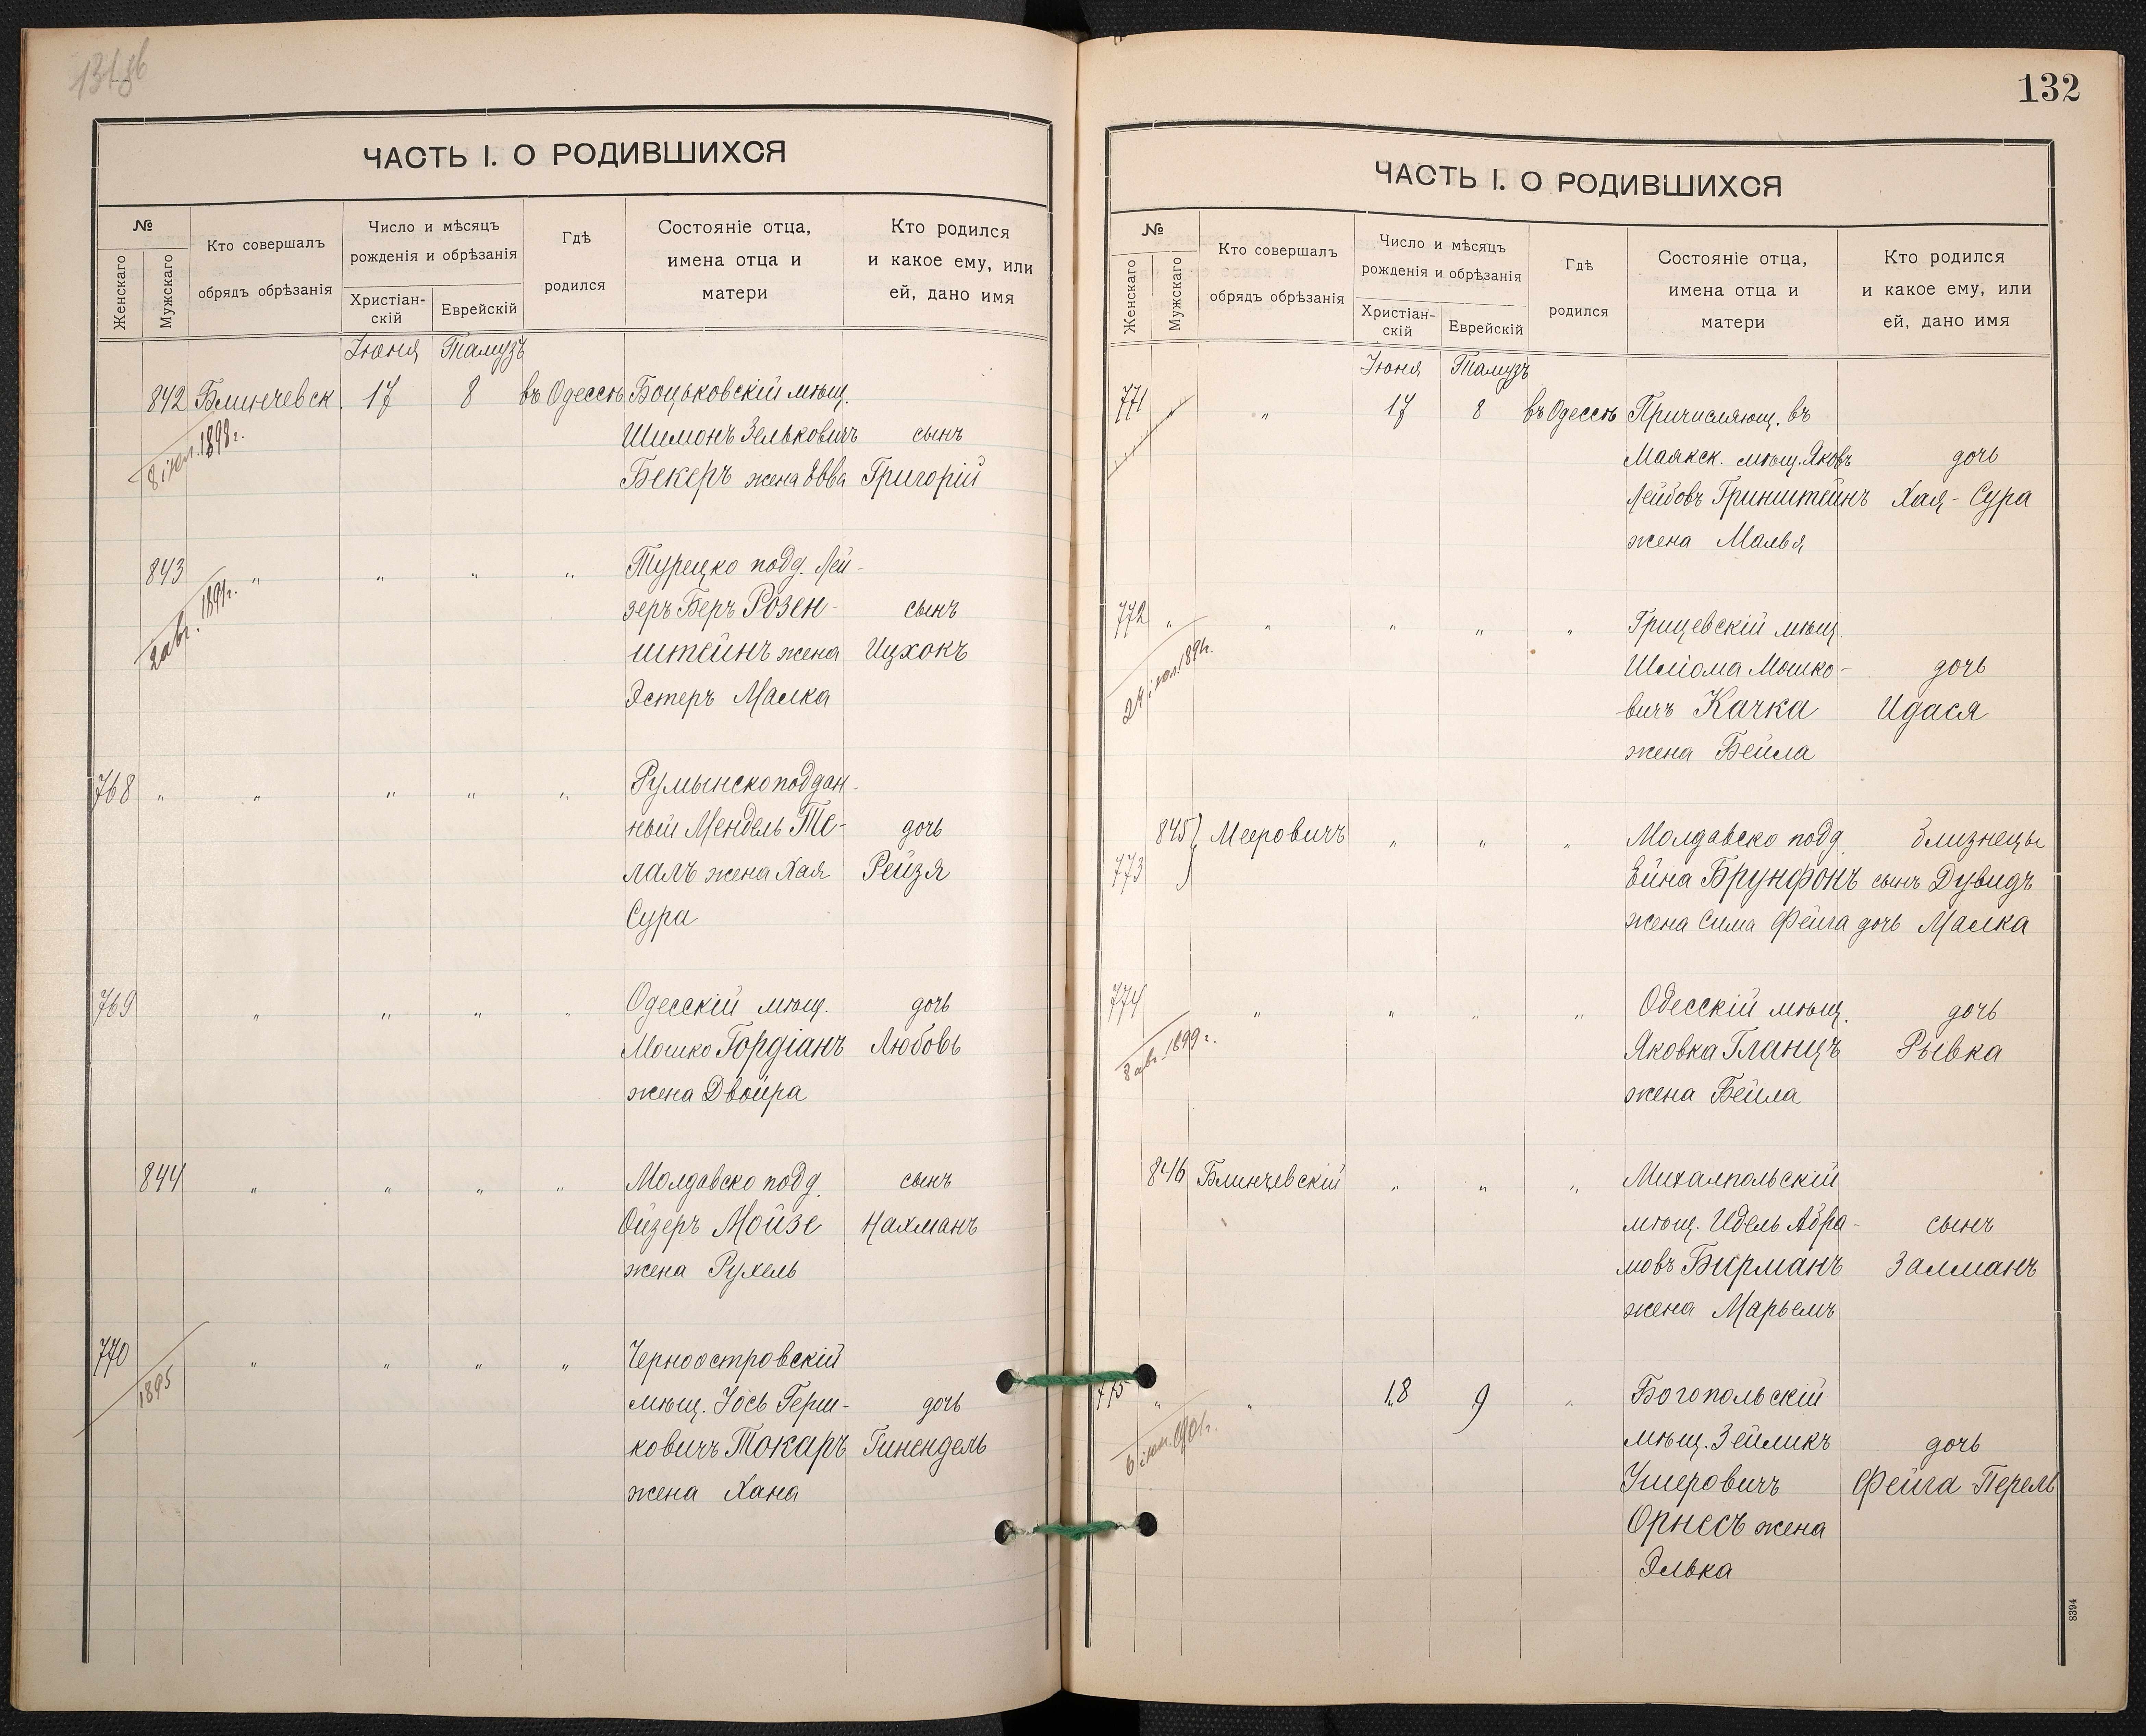 ЧАСТЬ I. О РОДИВШИХСЯ
№
Женскаго
Мужскаго
Кто совершалъ
обрядъ обрѣзанія
Число и мѣсяцъ
рожденія и обрѣзанія
Христіан-
скій
Еврейскій
Гдѣ
родился
Состояніе отца,
имена отца и
матери
Кто родился
и какое ему, или
ей, дано имя
Іюня Тамузъ
842 Блинчевск. 17 8 въ Одессѣ Боцьковскій мѣщ.
1898г.
Шимонъ Зельковичъ сынъ
Бекеръ жена Евва Григорій
843 " " " " Турецко подд. Лей-
2 авг.
зеръ Беръ Розен- сынъ
штейнъ жена Ицхокъ
Эстеръ Малка
768 " " " " " Румынскоподдан-
ный Мендель Те- дочь
лалъ жена Хая Рейзя
Сура
769 " " " " Одесскій мѣщ. дочь
Мошко Гордіанъ Любовь
жена Двойра
844 " " " " Молдавско подд. сынъ
Ойзеръ Мойзе Нахманъ
жена Рухель
770 " " " " Черноостровскій
1895
мѣщ. Іось Герш- дочь
ковичъ Токаръ Гинендель
жена Хана
132
ЧАСТЬ I. О РОДИВШИХСЯ
№
Женскаго
Мужскаго
Кто совершалъ
обрядъ обрѣзанія
Число и мѣсяцъ
рожденія и обрѣзанія
Христіан-
скій
Еврейскій
Гдѣ
родился
Состояніе отца,
имена отца и
матери
Кто родился
и какое ему, или
ей, дано имя
Іюня Тамузъ
771 " 17 8 въ Одессѣ Причисляющ. въ
Маякск. мѣщ. Яковъ дочь
Лейбовъ Гринштейнъ Хая-Сура
жена Малья
772 " " " " " Грицевскій мѣщ.
Шліома Мошко- дочь
вичъ Качка Идася
жена Бейла
845 Мееровичъ " " " Молдавско подд. близнецы
773 Ейна Брунфонъ сынъ Дувидъ
жена Сима Фейга дочь Малка
774 " " " " Одесскій мѣщ. дочь
8 авг. 1899г.
Яковка Гланцъ Рывка
жена Бейла
846 Блинчевскій " " " Михалпольскій
мѣщ. Идель Абра- сынъ
мовъ Бирманъ Залманъ
жена Марьемъ
775 " " 18 9 " Богопольскій
мѣщ. Зейликъ дочь
Ушеровичъ Фейга Перель
Орнесъ жена
Элька
8394